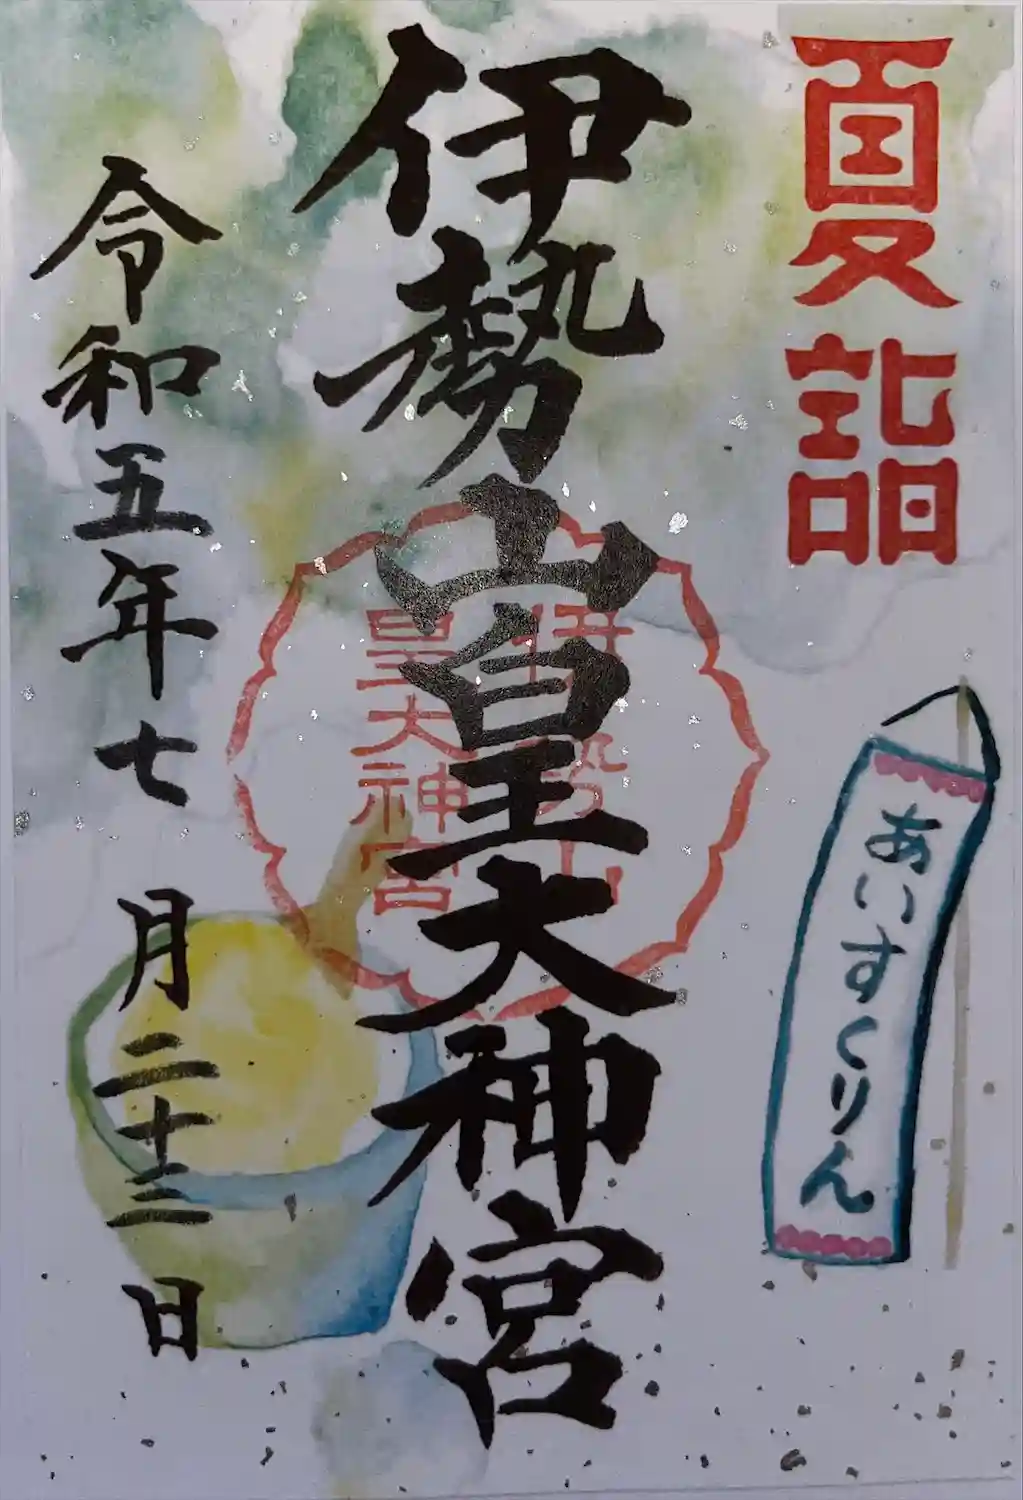 夏詣
伊勢山皇大神宮
伊勢山
皇大神宮
あいすくりん
令和五年七月二十三日